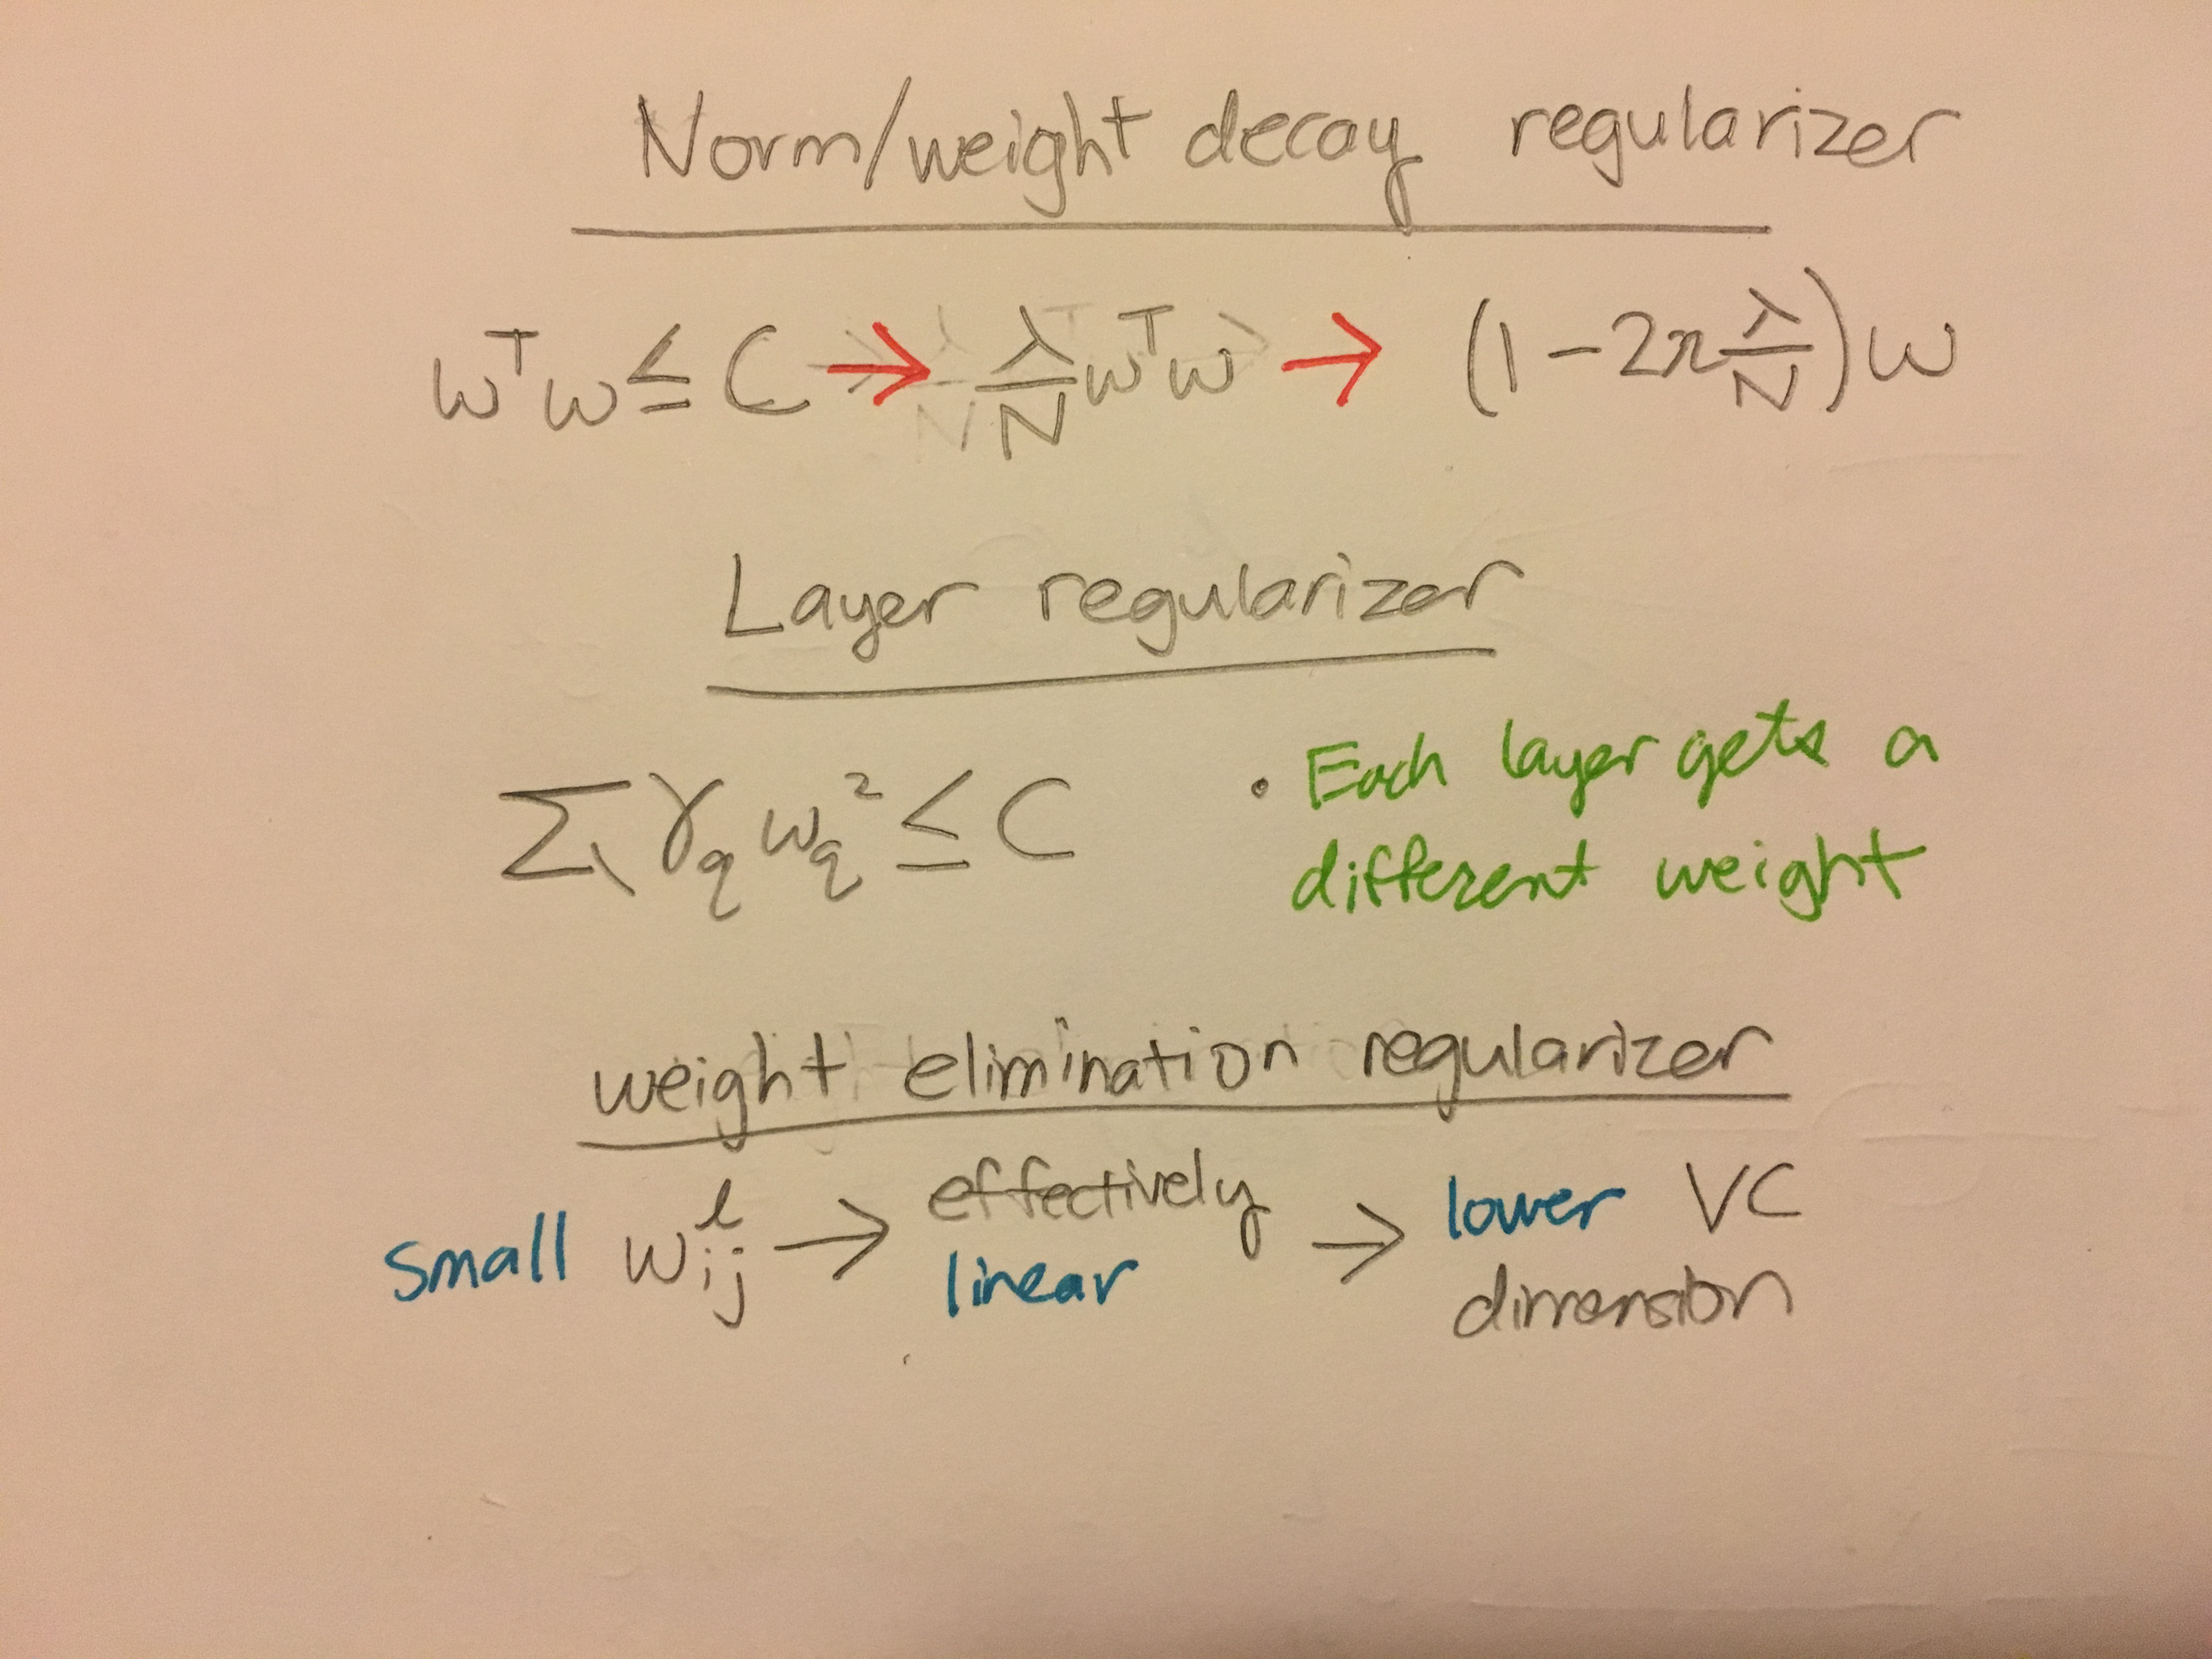 Norm/weight decay regularizer
wᵀw ≤ C → λ/N wᵀw → (1-2η λ/N)w
Layer regularizer
Σ γ_q w_q² ≤ C · Each layer gets a
different weight
weight elimination regularizer
small w_ij^ℓ → effectively linear → lower VC dimension